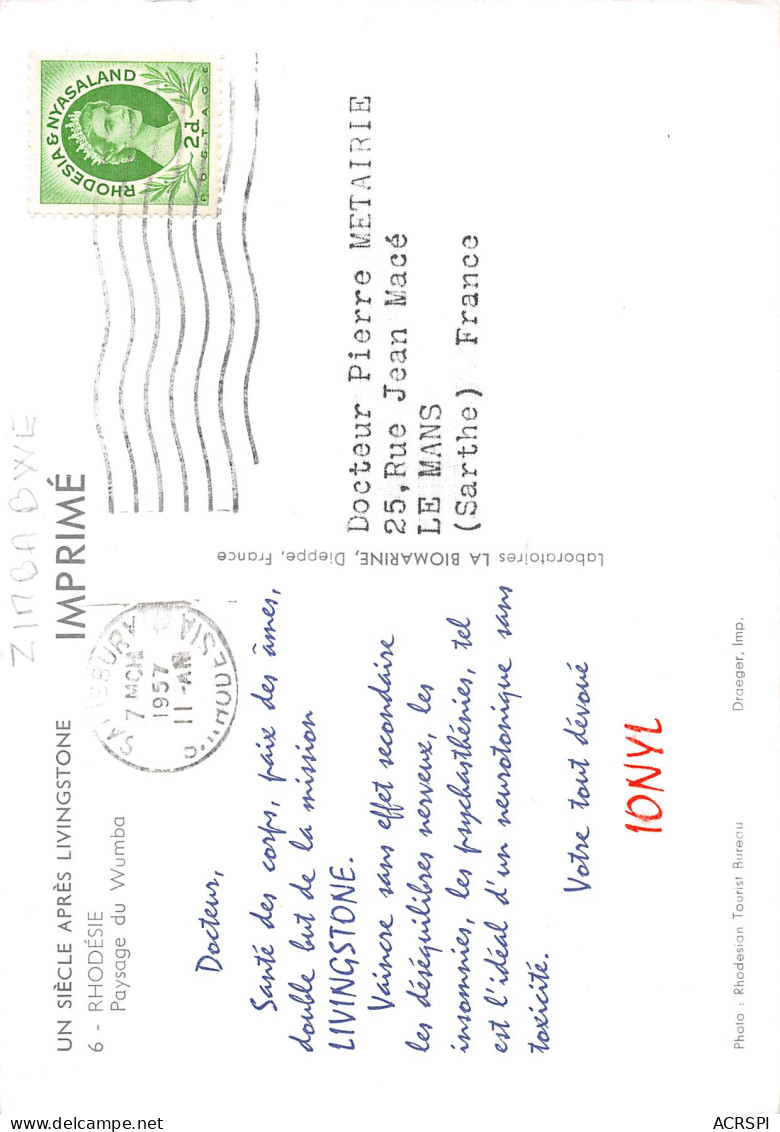 ZIMBABWE
UN SIÈCLE APRÈS LIVINGSTONE
6 - RHODÉSIE
Paysage du Wumba
IMPRIMÉ
7 MCH
1957
11-AM
RHODESIA & NYASALAND
2d
POSTAGE
Docteur,
Santé des corps, paix des âmes,
double but de la mission
LIVINGSTONE.
Vaincre sans effet secondaire
les déséquilibres nerveux, les
insomnies, les psychasthénies, tel
est l'idéal d'un neurotonique sans
toxicité.
Votre tout dévoué
IONYL
Laboratoires LA BIOMARINE, Dieppe, France
Docteur Pierre METAIRIE
25,Rue Jean Macé
LE MANS
(Sarthe) France
Photo : Rhodesian Tourist Bureau
Draeger, Imp.
delcampe.net
ACRSPI